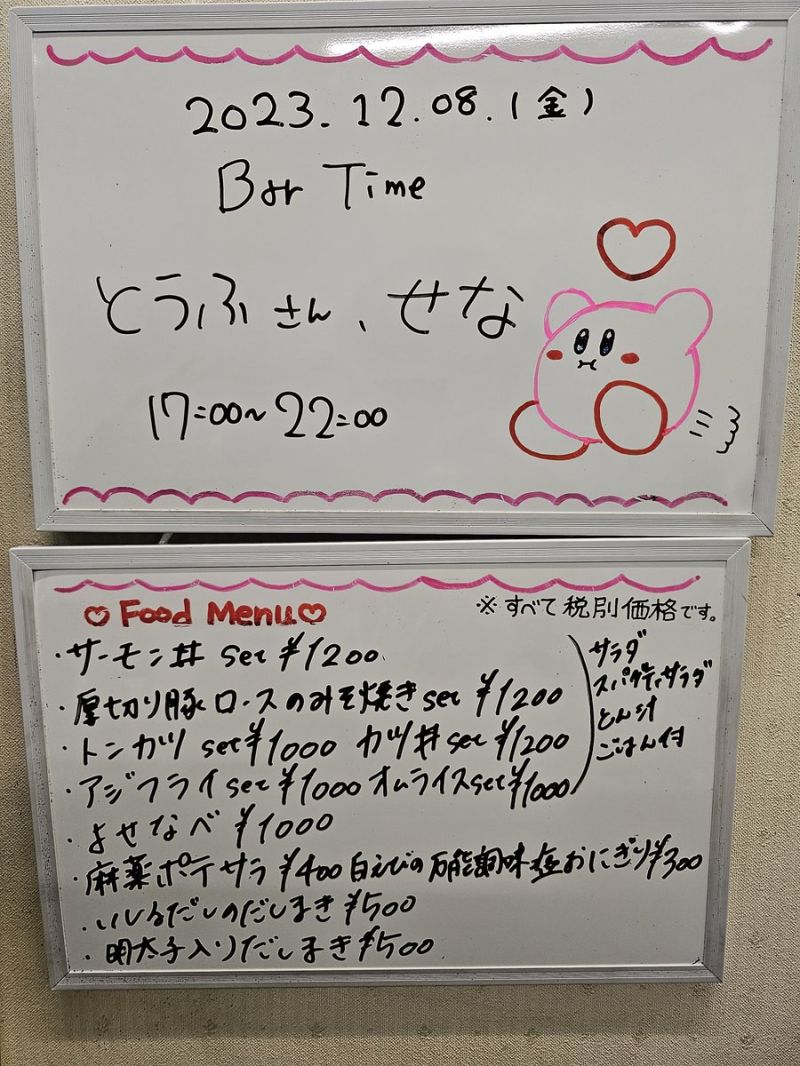 2023.12.08.(金)
Bar Time
とうふさん、せな
17:00~22:00
♡Food Menu♡
※すべて税別価格です。
・サーモン丼 set ¥1200
・厚切り豚ロースのみそ焼きset ¥1200
・トンカツ set¥1000 カツ丼set ¥1200
・アジフライset¥1000 オムライスset¥1000
サラダ
スパゲティサラダ
とん汁
ごはん付
・よせなべ ¥1000
・麻薬ポテサラ ¥400 白えびの万能調味塩おにぎり¥300
・いしるだしのだしまき ¥500
・明太子入りだしまき ¥500